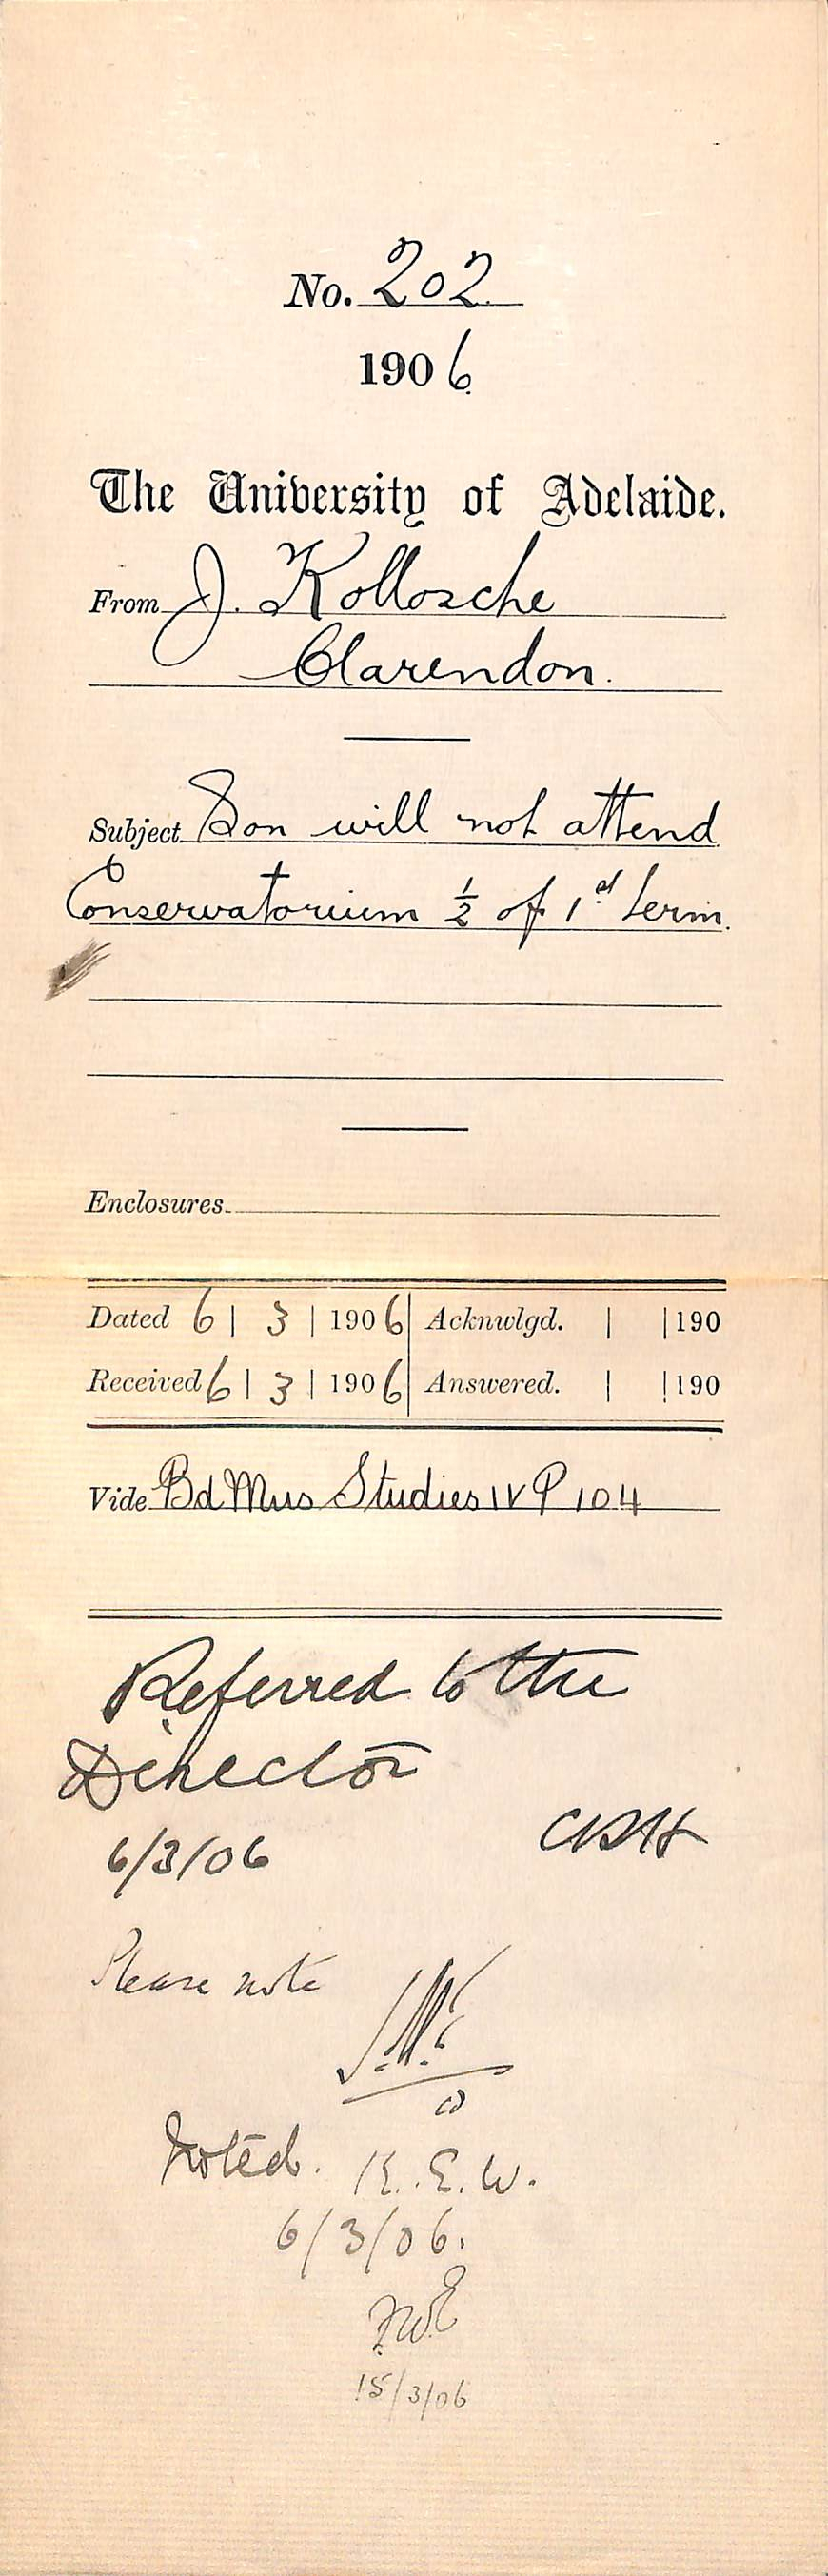 No. 202
1906
The University of Adelaide.
From J. Kollosche
Clarendon.
Subject Son will not attend
Conservatorium ½ of 1st term.
Enclosures
Dated 6 | 3 | 1906 Acknwlgd. | | 190
Received 6 | 3 | 1906 Answered. | | 190
Vide Bd Mus Studies IV P 104
Referred to the
Director
6/3/06
Please note
Noted. K. E. W.
6/3/06.
15/3/06